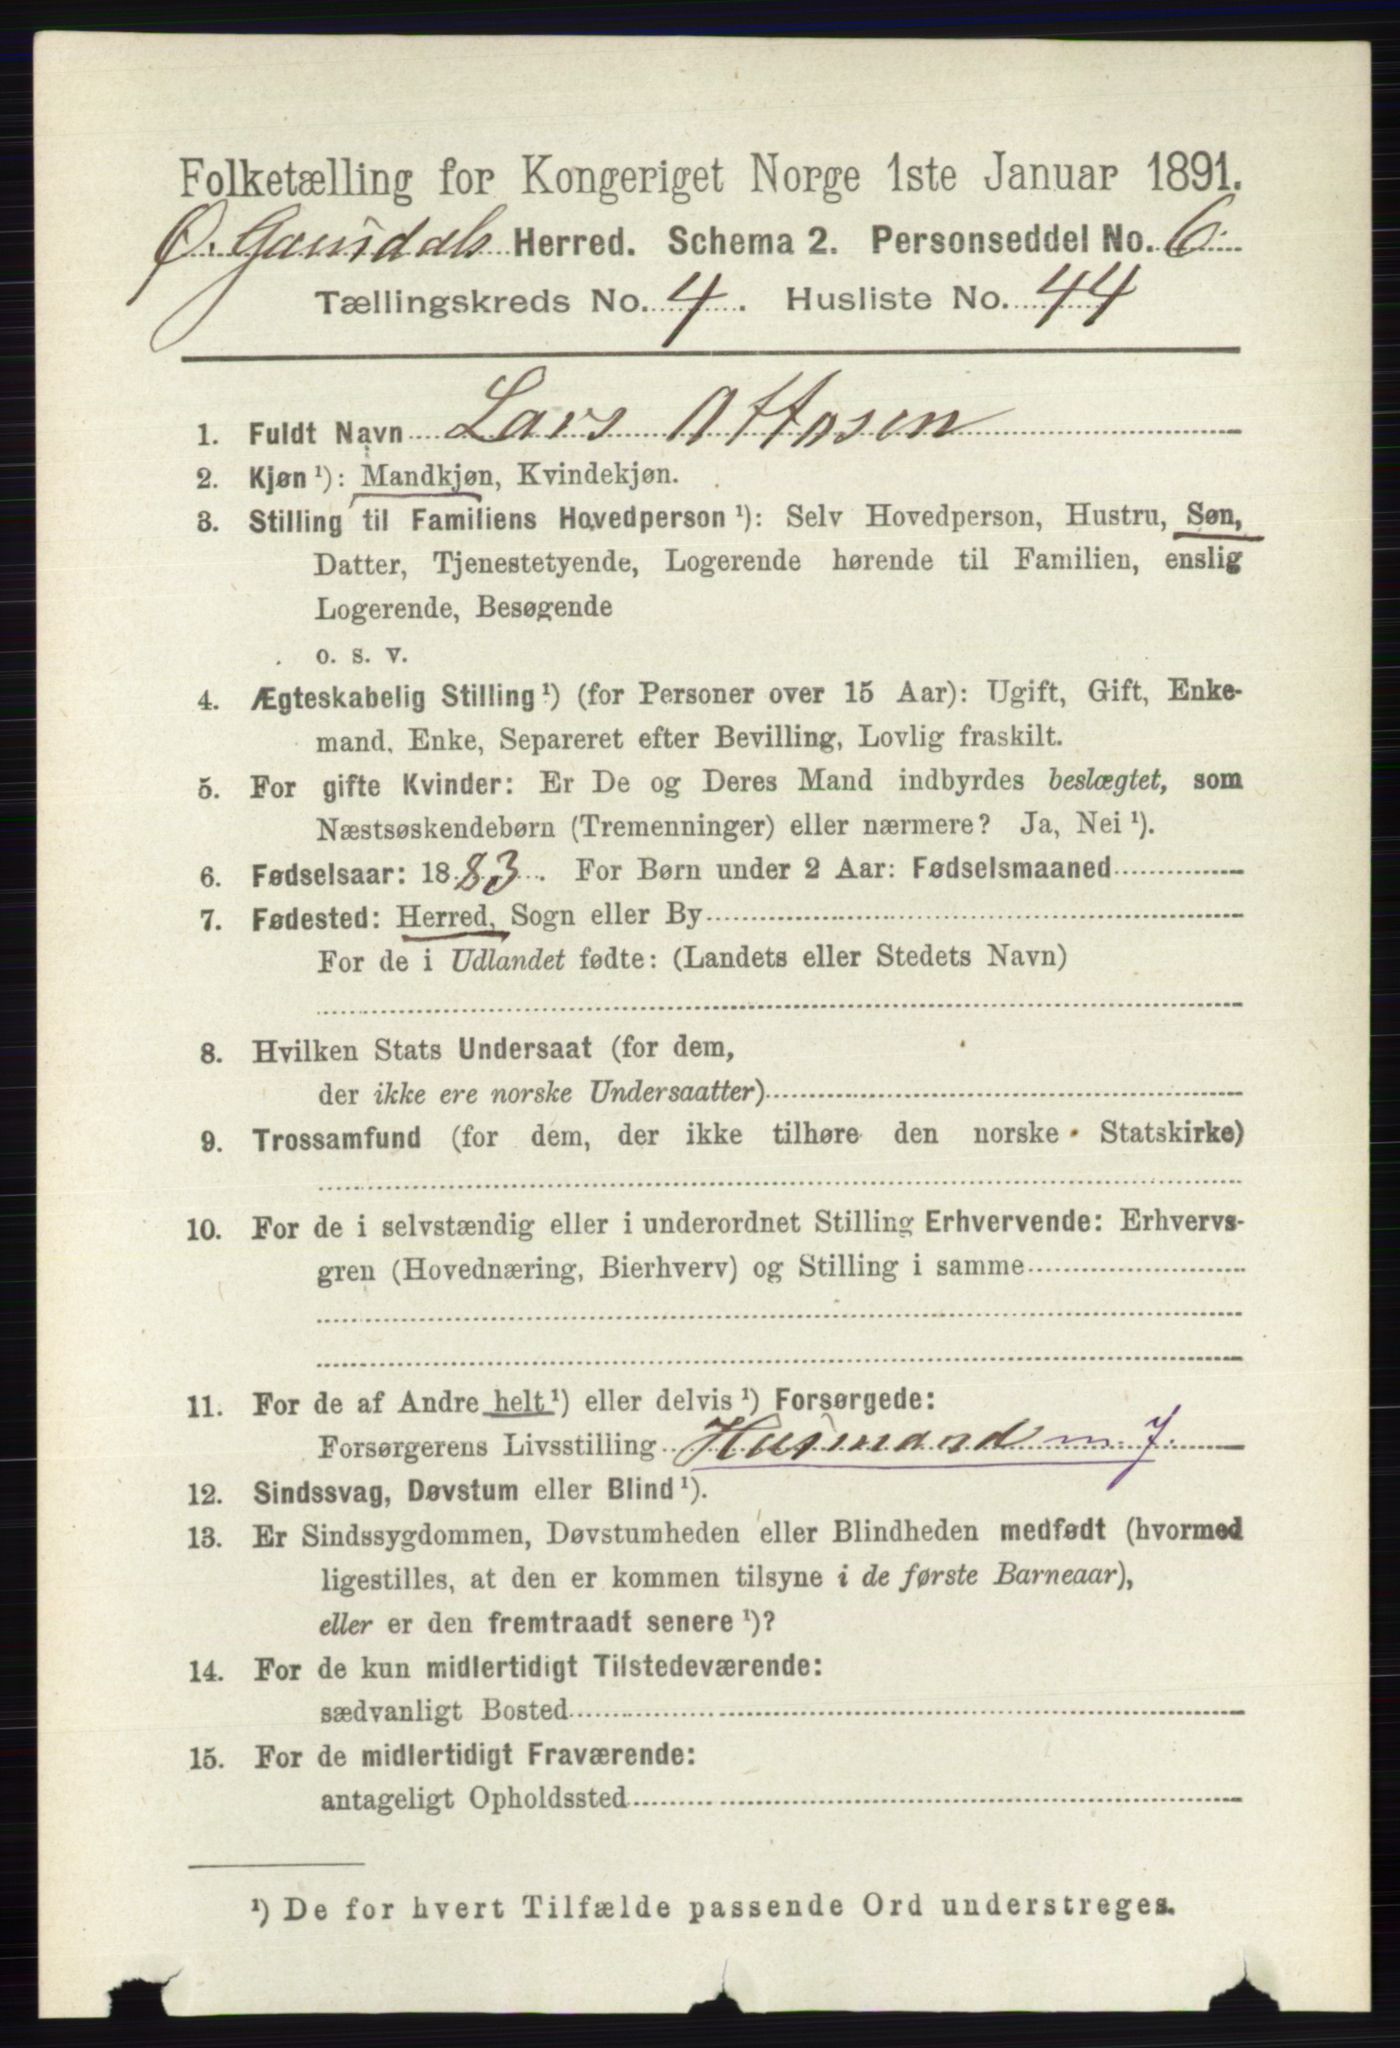 Folketælling for Kongeriget Norge 1ste Januar 1891.
Ø. Gausdals Herred. Schema 2. Personseddel No. 6
Tællingskreds No. 4. Husliste No. 44
1. Fuldt Navn Lars Ottosen
2. Kjøn ¹): Mandkjøn, Kvindekjøn.
3. Stilling til Familiens Hovedperson ¹): Selv Hovedperson, Hustru, Søn,
Datter, Tjenestetyende, Logerende hørende til Familien, enslig
Logerende, Besøgende
o. s. v.
4. Ægteskabelig Stilling ¹) (for Personer over 15 Aar): Ugift, Gift, Enke-
mand, Enke, Separeret efter Bevilling, Lovlig fraskilt.
5. For gifte Kvinder: Er De og Deres Mand indbyrdes beslægtet, som
Næstsøskendebørn (Tremenninger) eller nærmere? Ja, Nei ¹).
6. Fødselsaar: 1883. For Børn under 2 Aar: Fødselsmaaned
7. Fødested: Herred, Sogn eller By
For de i Udlandet fødte: (Landets eller Stedets Navn)
8. Hvilken Stats Undersaat (for dem,
der ikke ere norske Undersaatter)
9. Trossamfund (for dem, der ikke tilhøre den norske Statskirke)
10. For de i selvstændig eller i underordnet Stilling Erhvervende: Erhvervs-
gren (Hovednæring, Bierhverv) og Stilling i samme
11. For de af Andre helt ¹) eller delvis ¹) Forsørgede:
Forsørgerens Livsstilling Husmand m. J.
12. Sindssvag, Døvstum eller Blind ¹).
13. Er Sindssygdommen, Døvstumheden eller Blindheden medfødt (hvormed
ligestilles, at den er kommen tilsyne i de første Barneaar),
eller er den fremtraadt senere ¹)?
14. For de kun midlertidigt Tilstedeværende:
sædvanligt Bosted
15. For de midlertidigt Fraværende:
antageligt Opholdssted
¹) De for hvert Tilfælde passende Ord understreges.